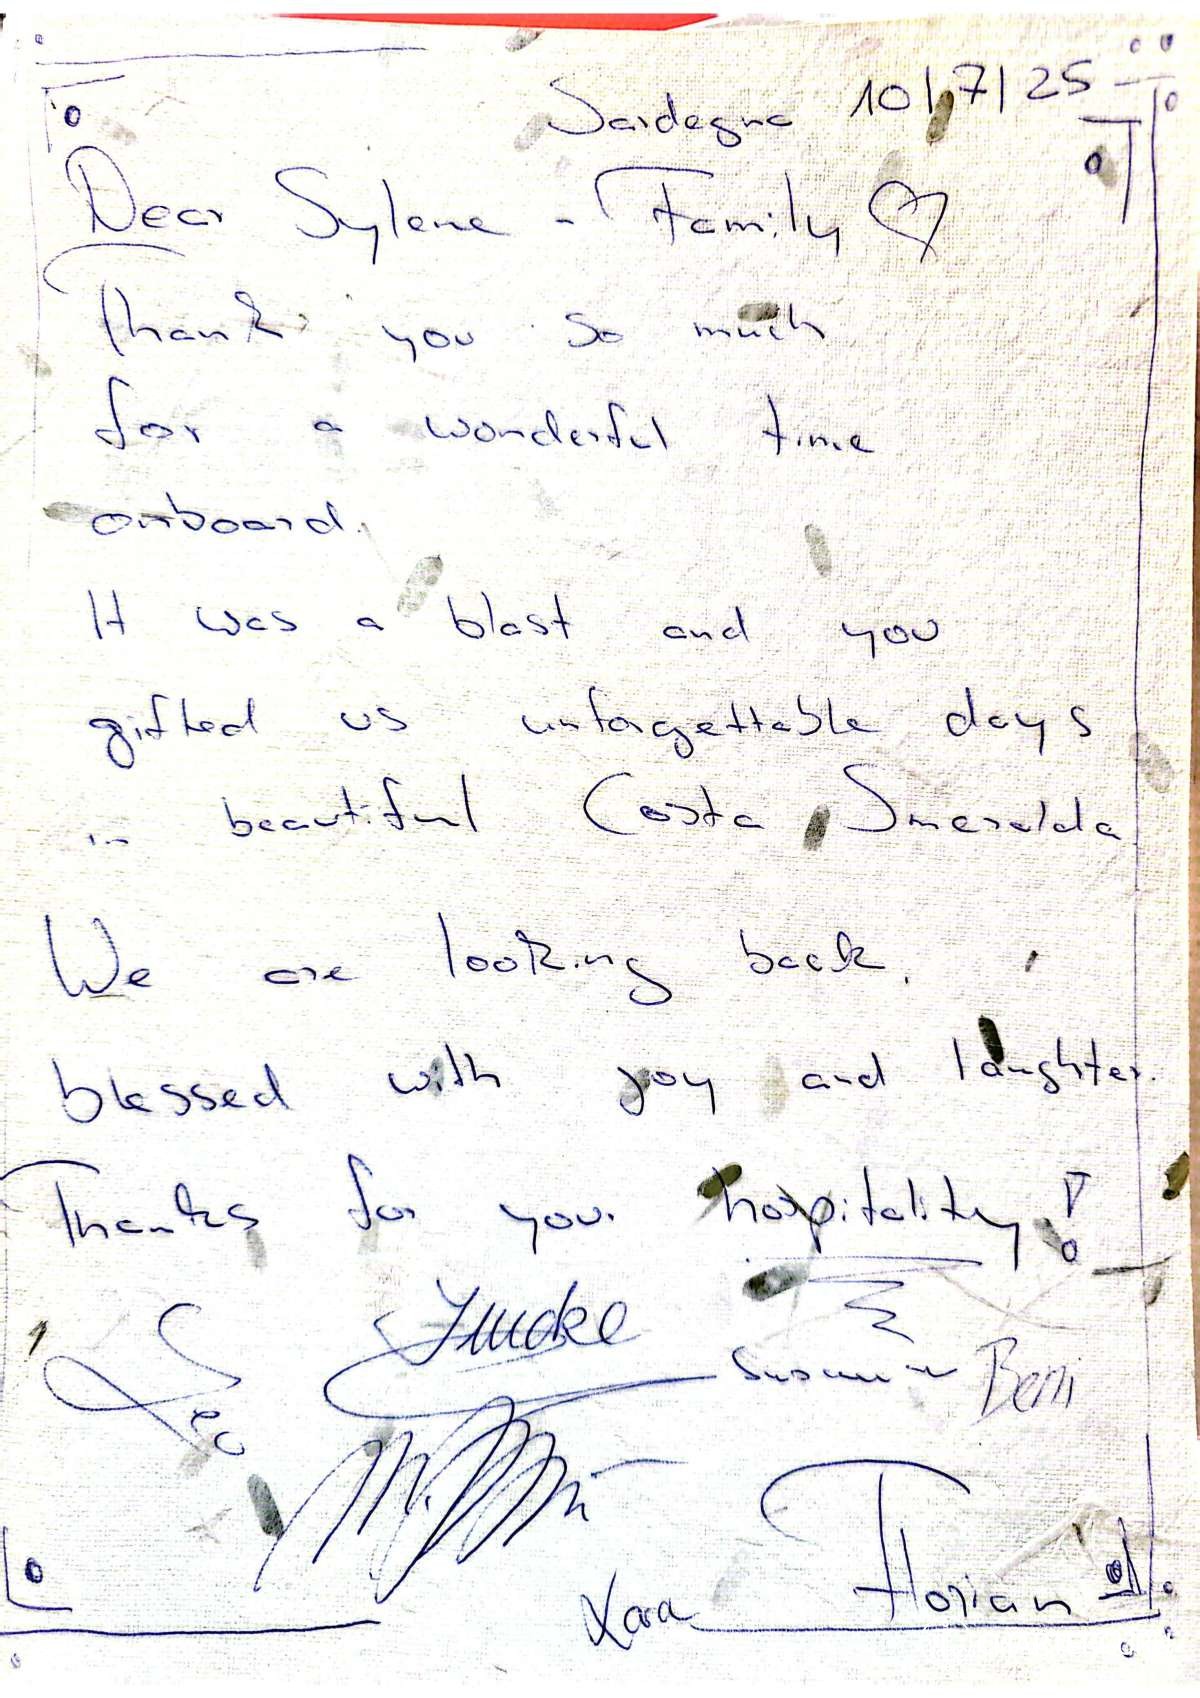 Sardegna 10/7/25
Dear Sylene - Family
Thank you so much
for a wonderful time
onboard.
It was a blast and you
gifted us unforgettable days
in beautiful Costa Smeralda
We are looking back,
blessed with joy and laughter.
Thanks for your hospitality!
Leo
Susanne Beni
Xara Florian